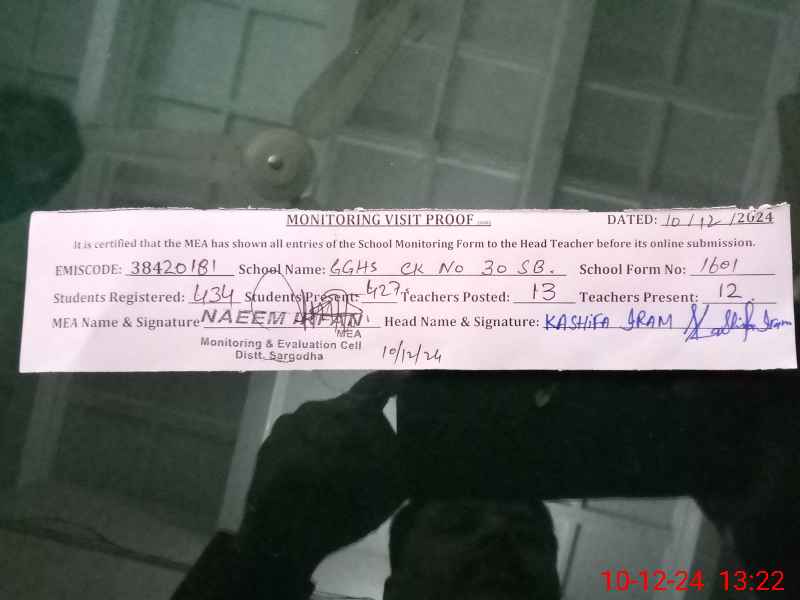 MONITORING VISIT PROOF DATED: 10/12/2024
It is certified that the MEA has shown all entries of the School Monitoring Form to the Head Teacher before its online submission.
EMISCODE: 38420181 School Name: GGHS CK No 30 SB. School Form No: 1601
Students Registered: 434 Students Present: 427 Teachers Posted: 13 Teachers Present: 12
MEA Name & Signature NAEEM IRFAN Head Name & Signature: KASHIFA IRAM Kashifa Iram
MEA
Monitoring & Evaluation Cell
Distt. Sargodha 10/12/24
10-12-24 13:22